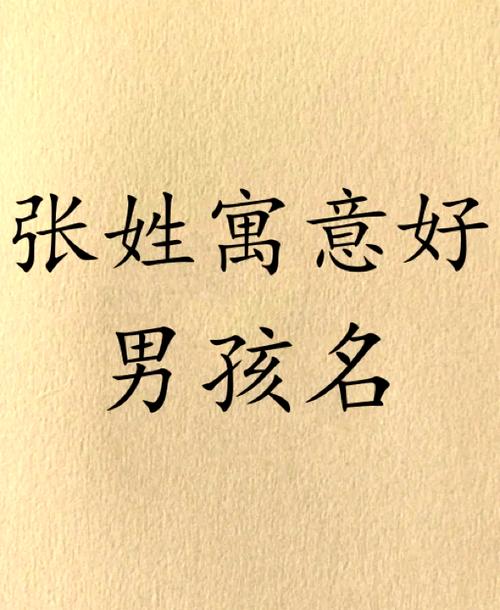 张姓寓意好
男孩名